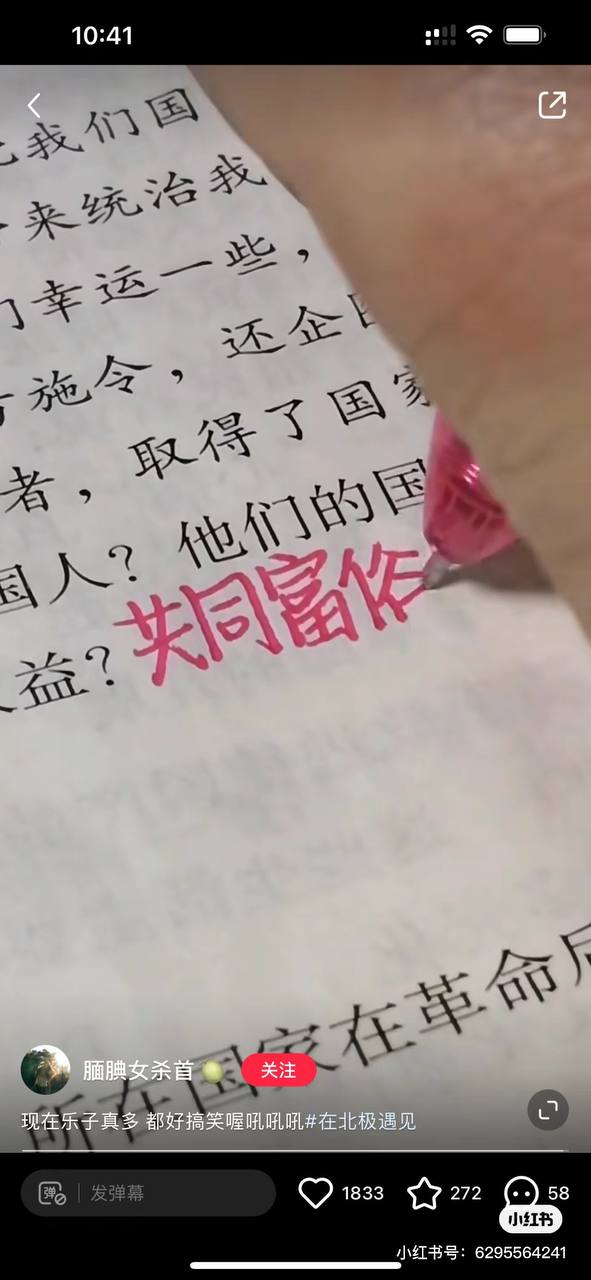 10:41
我们国
来统治我
幸运一些，
施令，还企
者，取得了国家
国人？他们的国
共同富俗
益？
所在国家在革命后
腼腆女杀首
关注
现在乐子真多 都好搞笑喔吼吼吼#在北极遇见
弹
发弹幕
1833
272
58
小红书
小红书号：6295564241